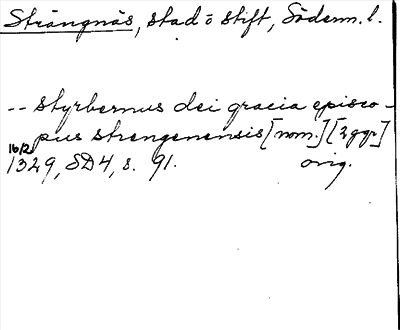 Strängnäs, stad o stift, Söderm. l.
-- styrbernus dei gracia episco-
pus strengenensis [nom.] [2 ggr]
16/2
1329, SD4, s. 91. orig.